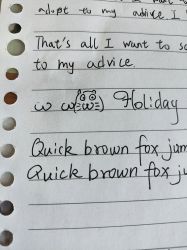 adopt to my advice I
That's all I want to sa
to my advice.
w w Holiday
Quick brown fox jum
Quick brown fox ju